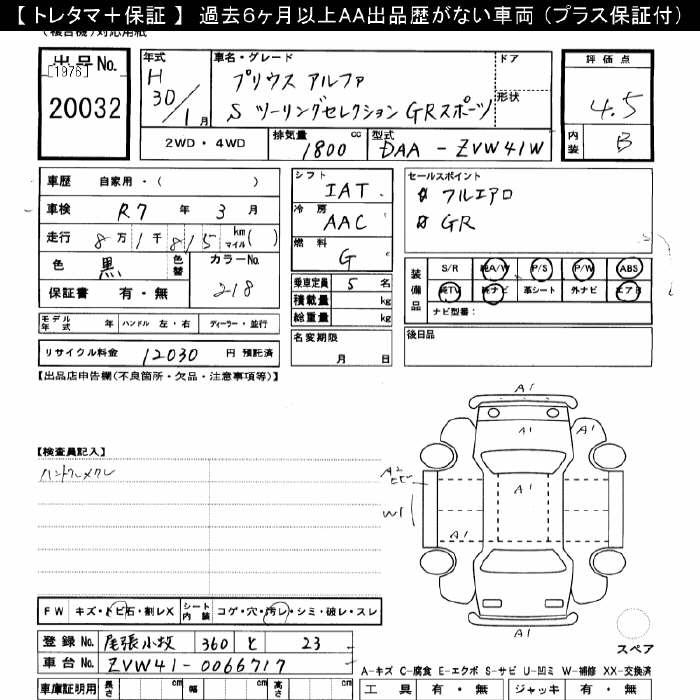 【 トレタマ＋保証 】 過去6ヶ月以上AA出品歴がない車両（プラス保証付）
出品 No.
[1976]
20032
年式
H
30/1月
車名・グレード
プリウス アルファ
S ツーリングセレクション GRスポーツ
ドア
形状
評価点
4.5
内装
B
2WD・4WD
排気量
1800 cc
型式
DAA - ZVW41W
車歴 自家用・( )
車検 R7 年 3 月
走行 8万1千815 km マイル( )
色 黒 色替 カラーNo. 218
保証書 有・無
シフト
IAT
冷房
AAC
燃料
G
乗車定員 5 名
積載量 kg
総重量 kg
セールスポイント
フルエアロ
GR
装備品
S/R 純A/W P/S P/W ABS
純TV 純ナビ 革シート 外ナビ エアB
ナビ型番：
モデル年式 年 ハンドル 左・右 ディーラー・並行
リサイクル料金 12030 円 預託済
名変期限
月 日
後日品
【出品店申告欄(不良箇所・欠品・注意事項等)】
【検査員記入】
ハンドルメクレ
A1
A1
A1
A2
A1
W1
A1
A1
スペア
FW キズ・トビ石・割レX シート内装 コゲ・穴・汚レ・シミ・破レ・スレ
登録 No. 尾張小牧 360 と 23
車台 No. ZVW41-0066717
A-キズ C-腐食 E-エクボ S-サビ U-凹ミ W-補修 XX-交換済
車庫証明用 長さ cm 幅 cm 高さ cm
工具 有・無 ジャッキ 有・無